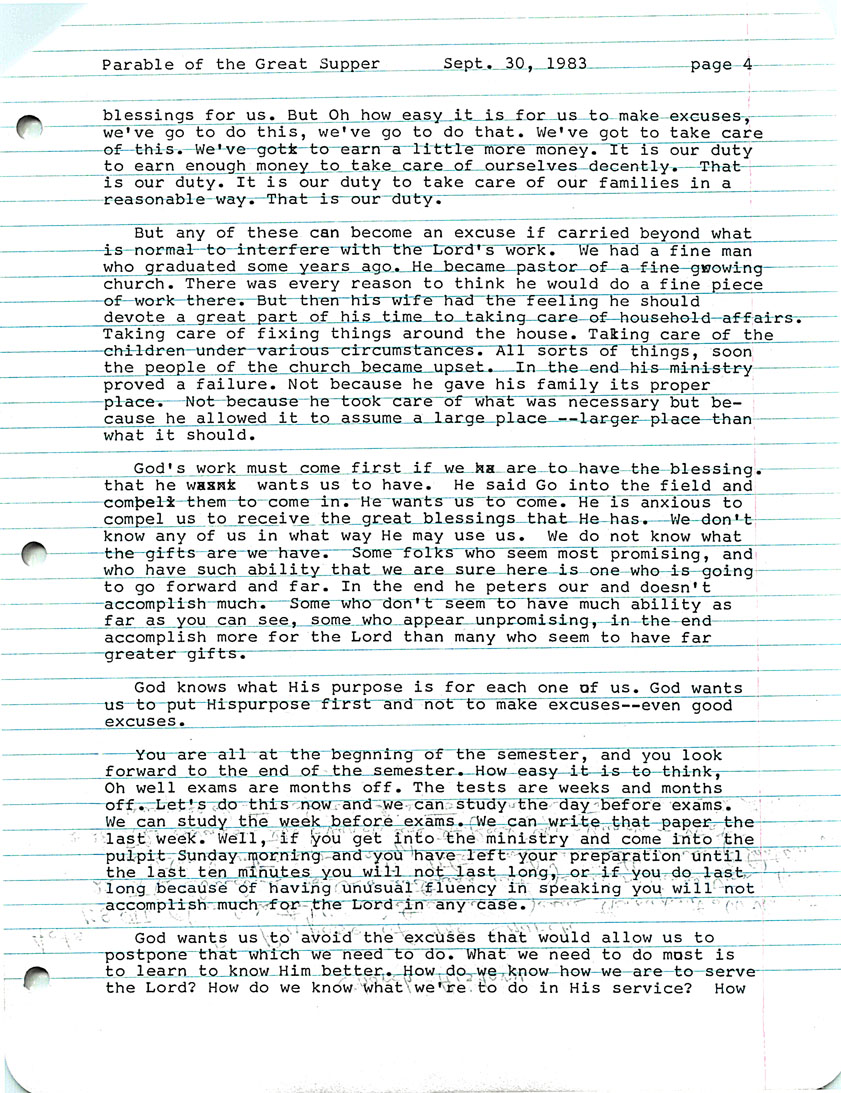 Parable of the Great Supper Sept. 30, 1983 page 4
blessings for us. But Oh how easy it is for us to make excuses,
we've go to do this, we've go to do that. We've got to take care
of this. We've gotx to earn a little more money. It is our duty
to earn enough money to take care of ourselves decently. That
is our duty. It is our duty to take care of our families in a
reasonable way. That is our duty.
But any of these can become an excuse if carried beyond what
is normal to interfere with the Lord's work. We had a fine man
who graduated some years ago. He became pastor of a fine growing
church. There was every reason to think he would do a fine piece
of work there. But then his wife had the feeling he should
devote a great part of his time to taking care of household affairs.
Taking care of fixing things around the house. Taking care of the
children under various circumstances. All sorts of things, soon
the people of the church became upset. In the end his ministry
proved a failure. Not because he gave his family its proper
place. Not because he took care of what was necessary but be-
cause he allowed it to assume a large place --larger place than
what it should.
God's work must come first if we are to have the blessing.
that he wants us to have. He said Go into the field and
compel them to come in. He wants us to come. He is anxious to
compel us to receive the great blessings that He has. We don't
know any of us in what way He may use us. We do not know what
the gifts are we have. Some folks who seem most promising, and
who have such ability that we are sure here is one who is going
to go forward and far. In the end he peters our and doesn't
accomplish much. Some who don't seem to have much ability as
far as you can see, some who appear unpromising, in the end
accomplish more for the Lord than many who seem to have far
greater gifts.
God knows what His purpose is for each one of us. God wants
us to put Hispurpose first and not to make excuses--even good
excuses.
You are all at the begnning of the semester, and you look
forward to the end of the semester. How easy it is to think,
Oh well exams are months off. The tests are weeks and months
off. Let's do this now and we can study the day before exams.
We can study the week before exams. We can write that paper the
last week. Well, if you get into the ministry and come into the
pulpit Sunday morning and you have left your preparation until
the last ten minutes you will not last long, or if you do last
long because of having unusual fluency in speaking you will not
accomplish much for the Lord in any case.
God wants us to avoid the excuses that would allow us to
postpone that which we need to do. What we need to do most is
to learn to know Him better. How do we know how we are to serve
the Lord? How do we know what we're to do in His service? How